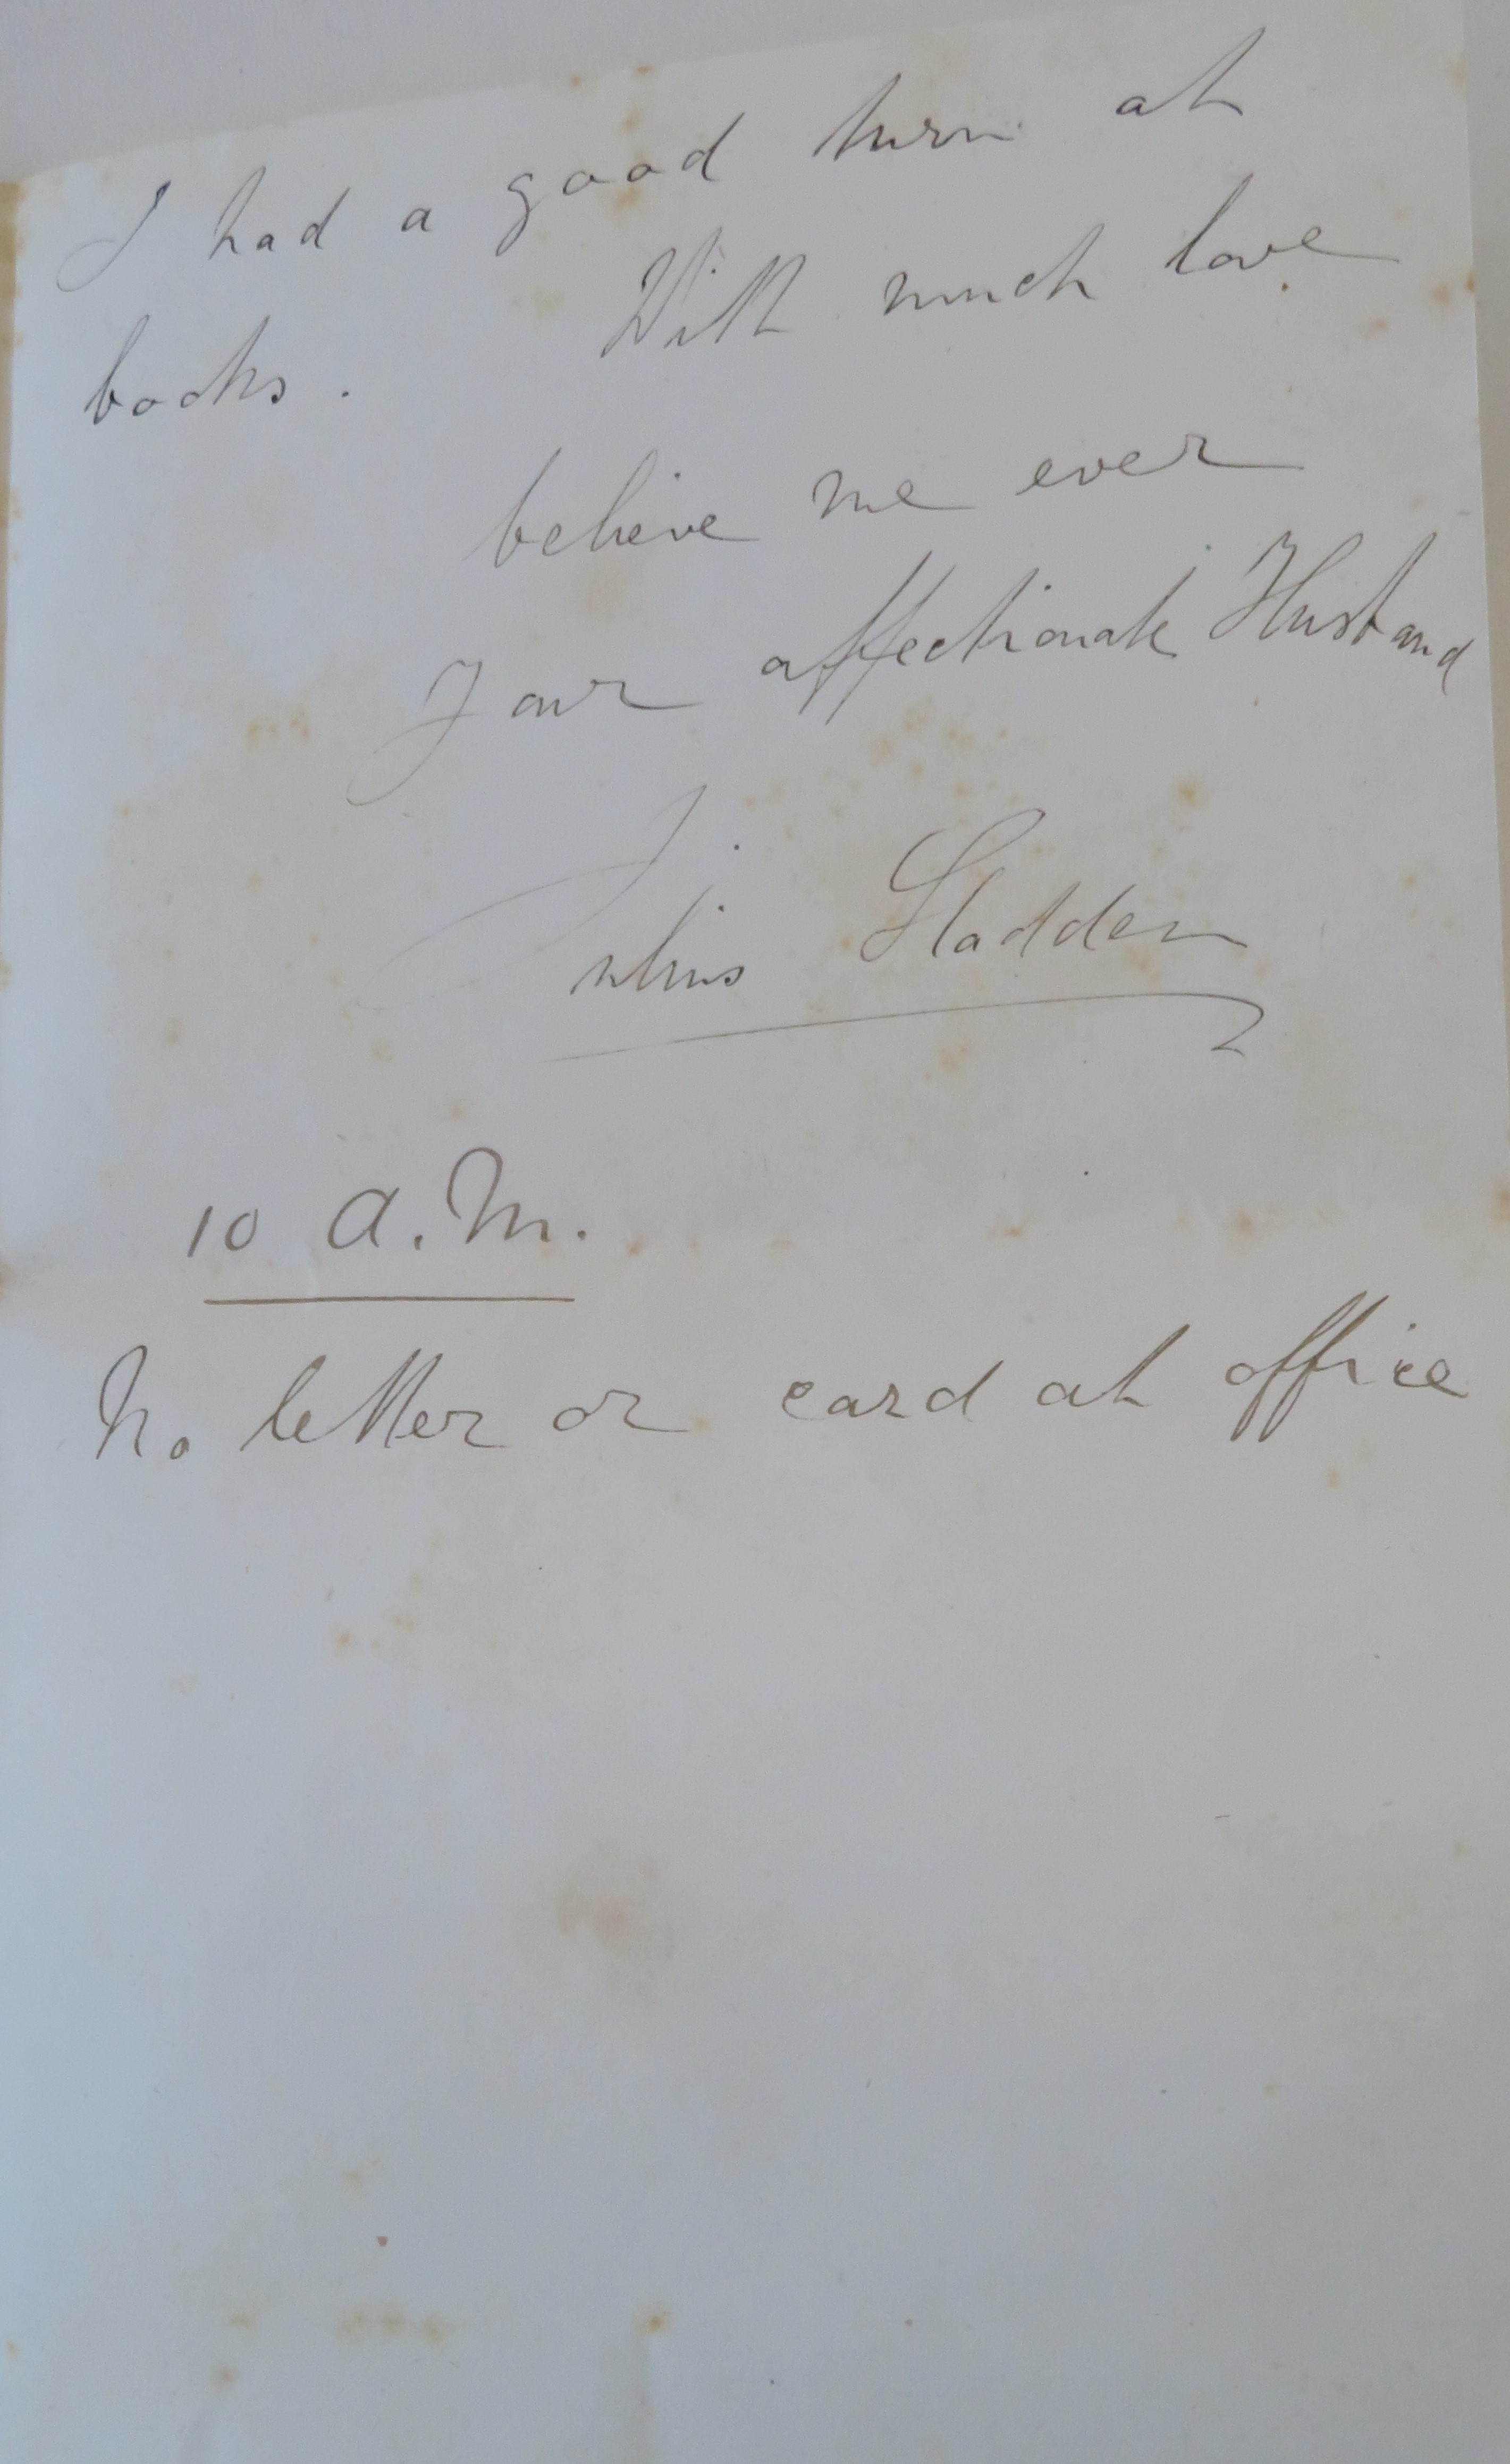 I had a good turn at
books. With much love
believe me ever
Your affectionate Husband
Julius Sladden
10 A.M.
No letter or card at office